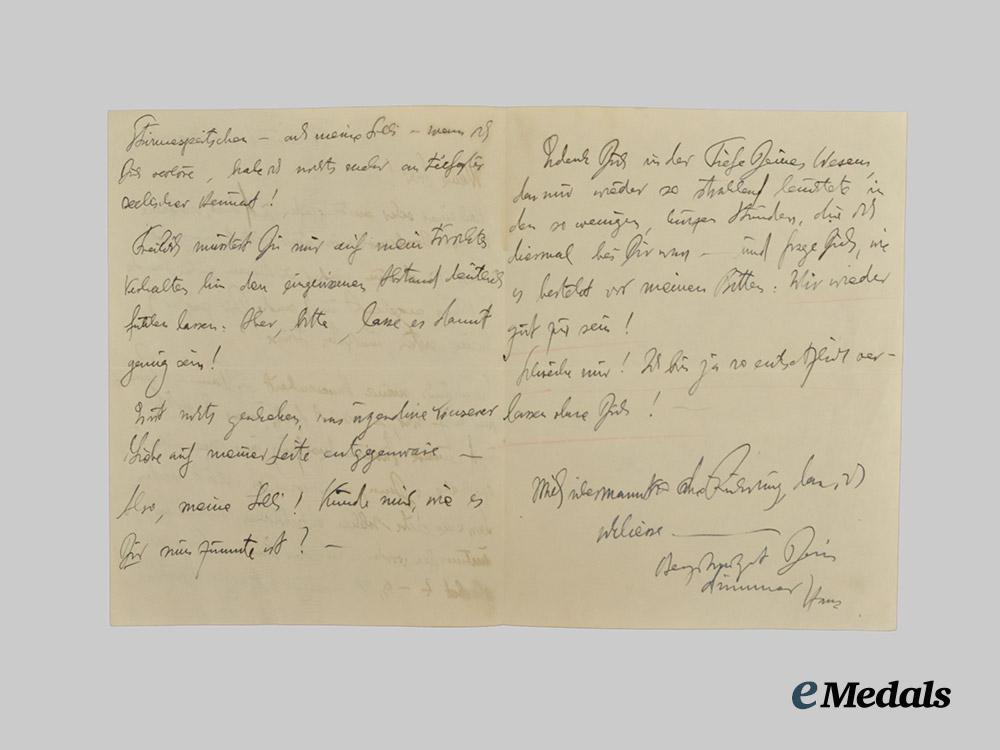 – ach meine Lilli – wenn ich
Dich verlöre, habe ich nichts mehr an tiefster
seelischer Heimat!
Freilich musstest Du mir auf mein törichtes
Verhalten hin den Abstand deutlich
fühlen lassen. Aber, bitte, lasse es damit
genug sein!
nichts geschehen, was irgendeine unserer
Liebe auf meiner Seite entgegenwäre –
Also, meine Lilli! Künde mir, wie es
Dir nun zumute ist? –
Dich in der Tiefe Deines Wesens,
das mir wieder so strahlend leuchtete in
den so wenigen, kurzen Stunden, die ich
diesmal bei Dir war – und frage Dich, wie
es besteht vor meinen Bitten: Mir wieder
gut zu sein!
Schreibe mir! Ich bin ja so entsetzlich ver-
lassen ohne Dich! –
Mich übermannt die, dass ich
Dein
immer Hans
eMedals